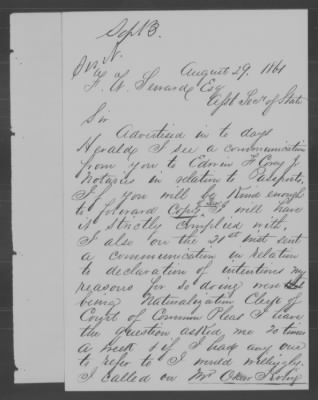 Sept 3.
N.Y.
August 29. 1861
F. W. Seward Esq
Asst Secy of State
Sir
Advertised in to days
Herald I see a communication
from you to Edwin F Corey Jr
Notaries in relation to Passports,
If you will be Kind enough
to forward Copy I will have
it strictly Complied with,
I also on the 21st inst sent
a communication in relation
to declaration of intentions my
reasons for so doing were that
being Naturalization Clerk of
Court of Common Pleas I have
the question asked me 20 times
a week & if I had any one
to refer to I would willingly,
I called on Mr